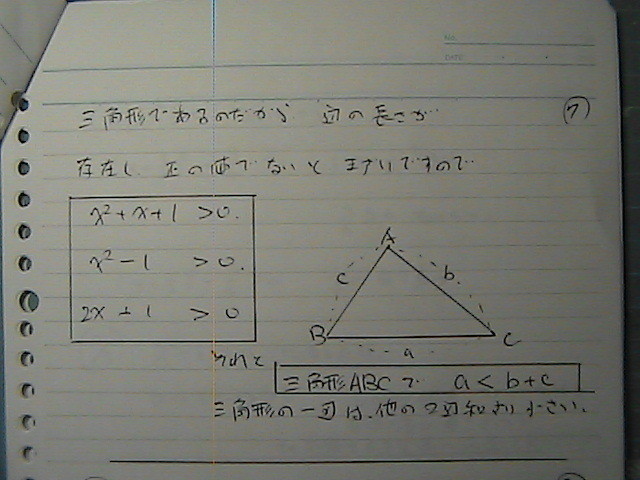 NO.
DATE
三角形であるのだから 辺の長さが ⑦
存在し 正の値でないと まずいですので
x²+x+1 >0.
x²-1 >0.
2x+1 >0
A
c b
B a C
それと
三角形ABCで a<b+c
三角形の一辺は、他の2辺和より小さい.